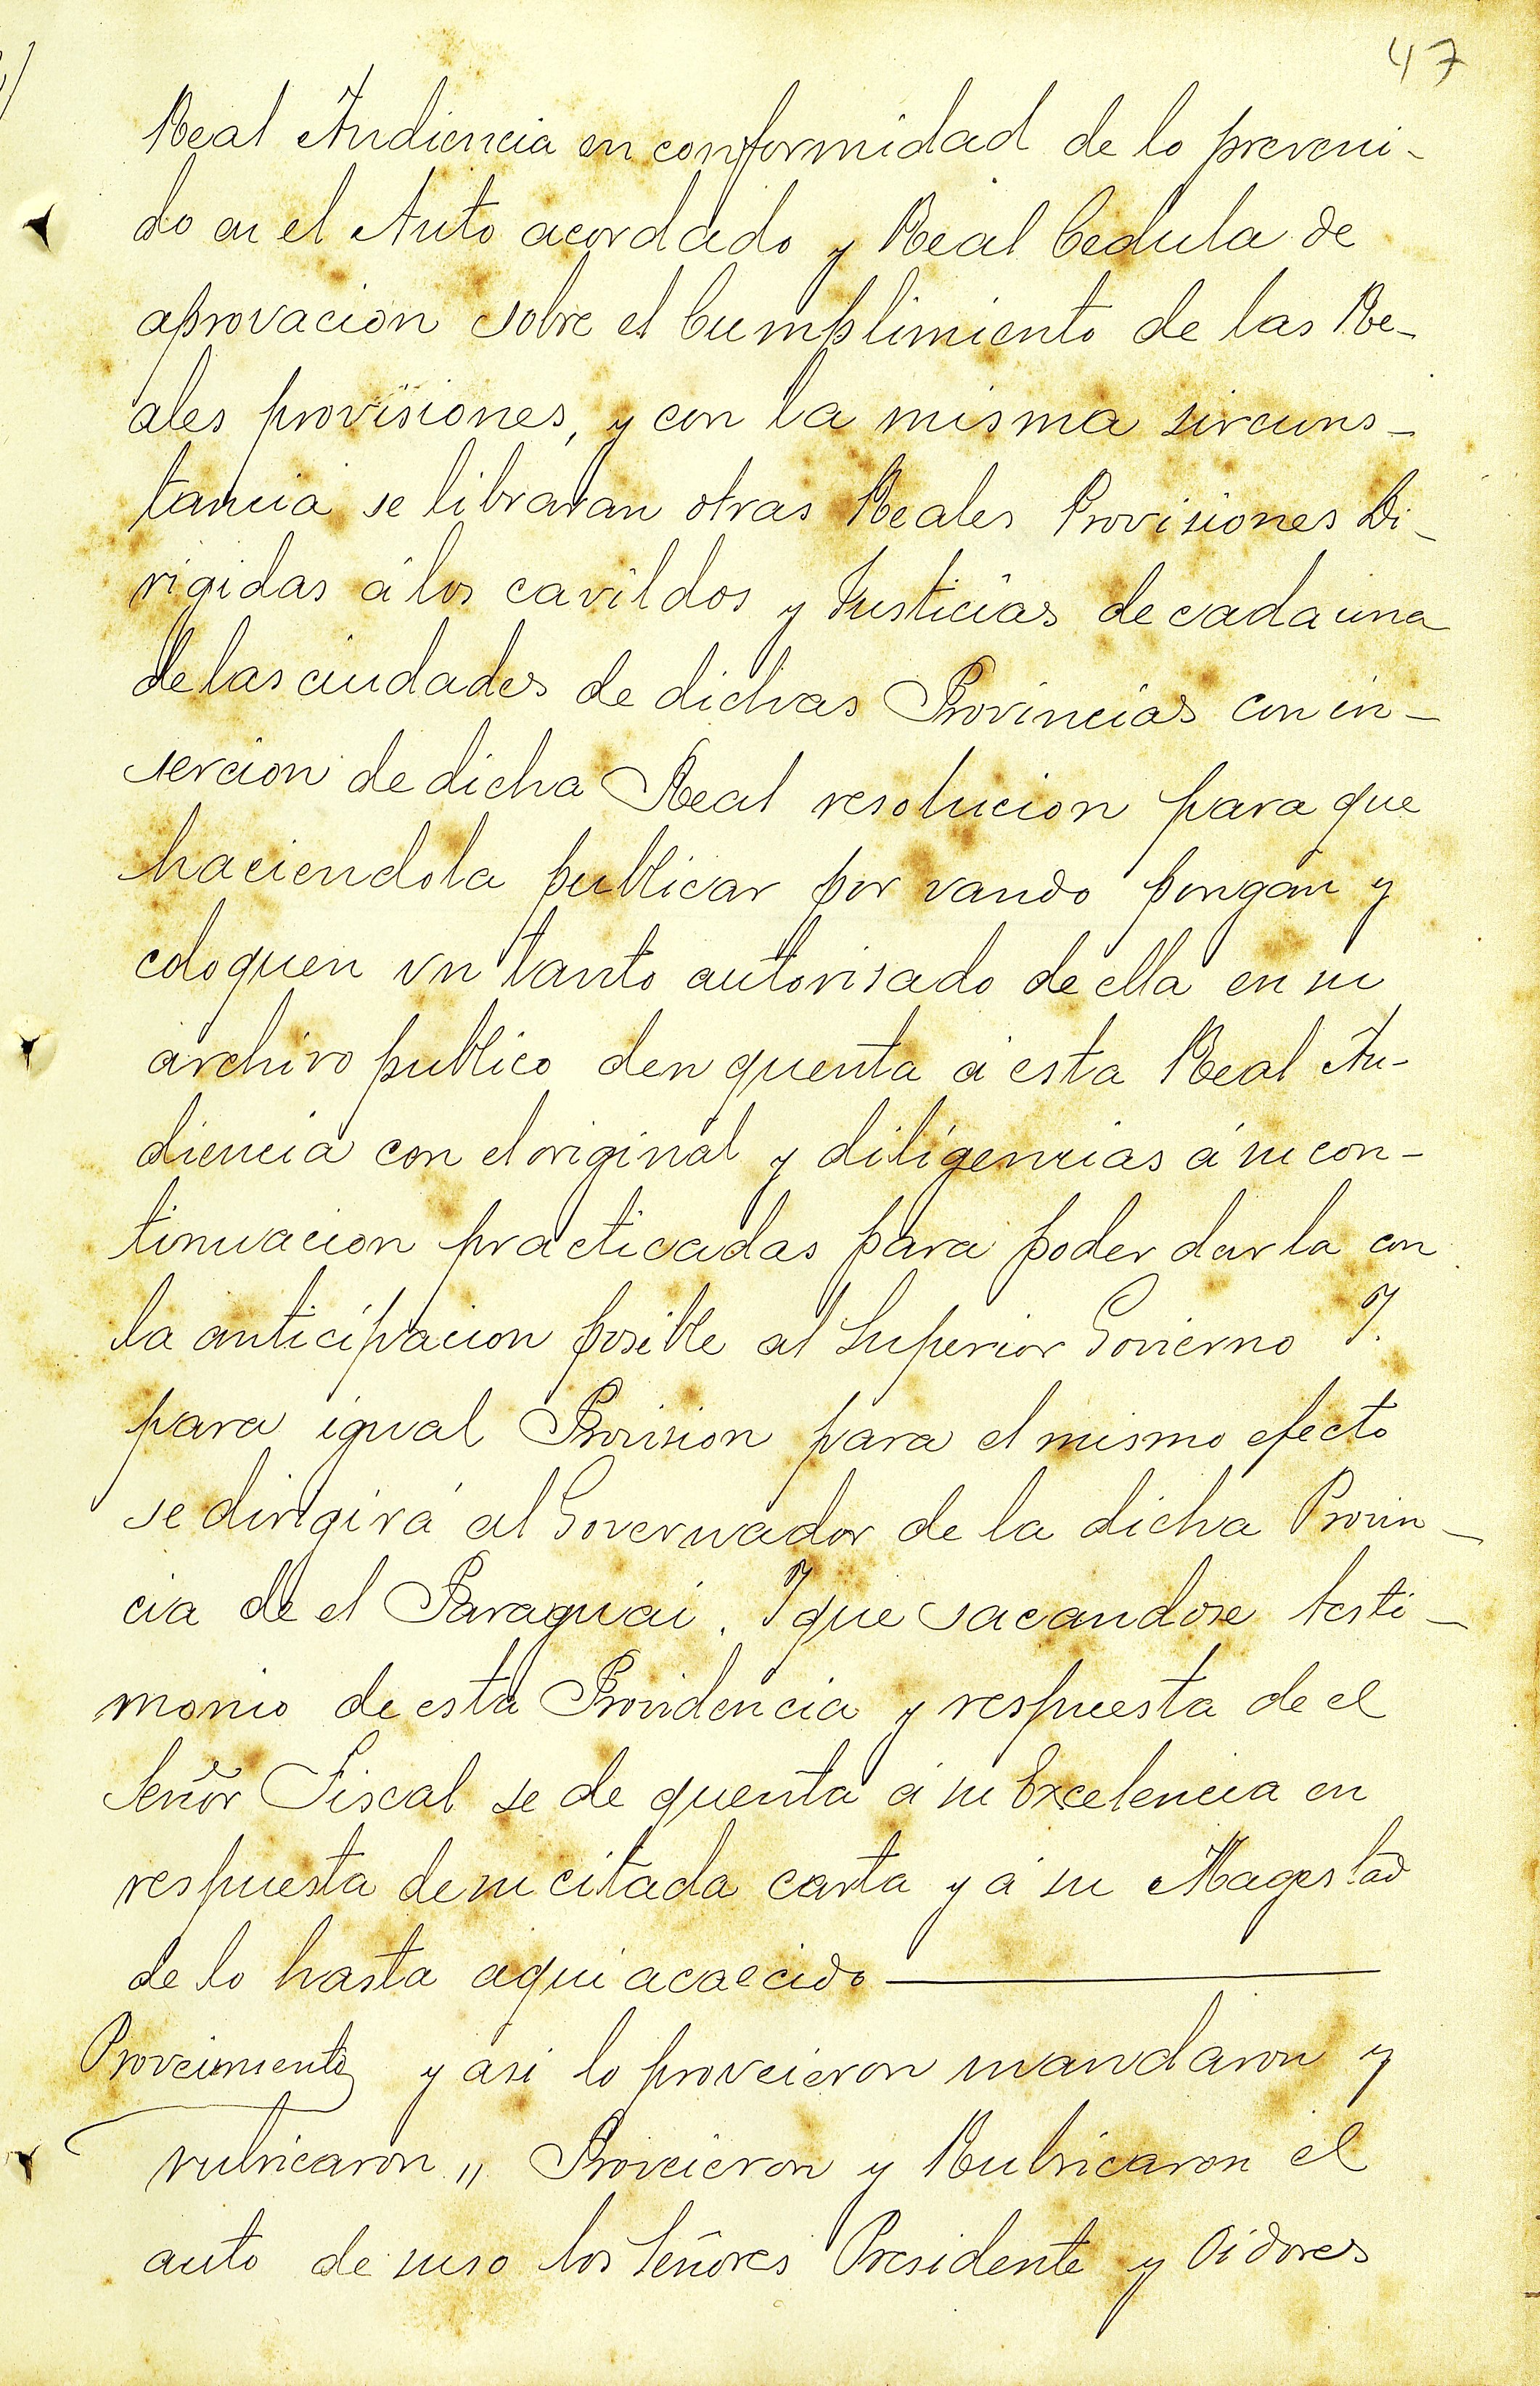 47
Real Audiencia en conformidad de lo preveni-
do en el Auto acordado y Real Cedula de
aprovacion sobre el Cumplimiento de las Re-
ales provisiones, y con la misma sircuns-
tancia se libraran otras Reales Provisiones Di-
rigidas á los cavildos y Justicias de cada una
de las ciudades de dichas Provincias con in-
sercion de dicha Real resolucion para que
haciendola publicar por vando pongan y
coloquen vn tanto autorisado de ella en su
archivo publico den quenta á esta Real Au-
diencia con el original y diligencias á su con-
tinuacion practicadas para poder darla con
la anticipacion posible al Superior Govierno Y.
para igual Provision para el mismo efecto
se dirigirá al Governador de la dicha Provin-
cia de el Paraguai. Y que sacandose testi-
monio de esta Providencia y respuesta de el
Señor Fiscal se de quenta á su Excelencia en
respuesta de su citada carta y á su Magestad
de lo hasta aqui acaecido
Proveimento y asi lo proveieron mandaron y
rubricaron " Proveieron y Rubricaron el
auto de suso los Señores Presidente y Oidores